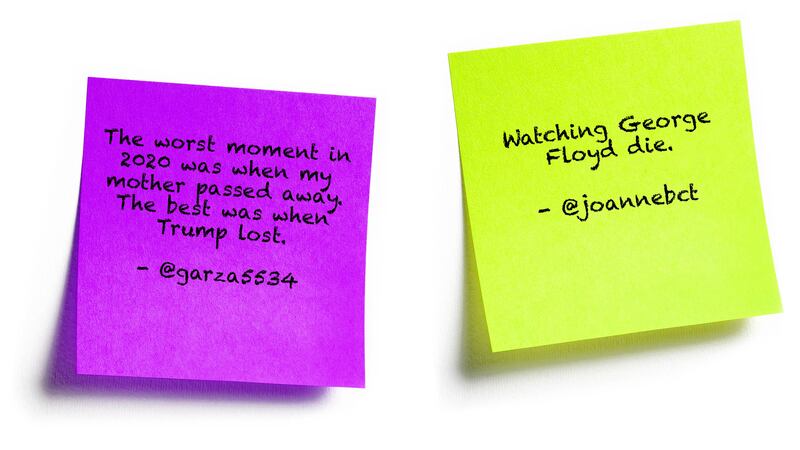 The worst moment in
2020 was when my
mother passed away.
The best was when
Trump lost.
- @garza5534
Watching George
Floyd die.
- @joannebct